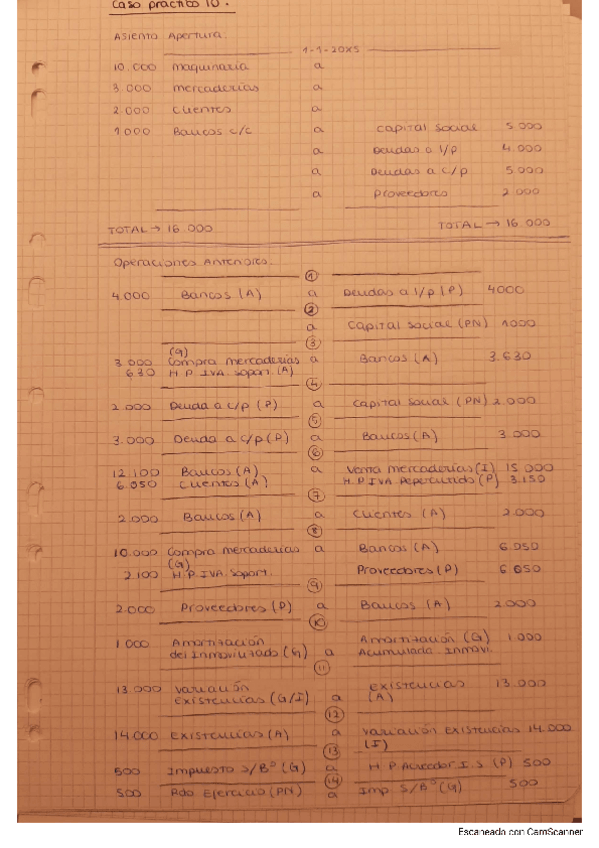 Caso práctico 10.
Asiento Apertura.
1-1-20X5
10.000 maquinaria a
3.000 mercaderías a
2.000 Clientes a
1000 Bancos c/c a Capital Social 5.000
a Deudas a l/p 4.000
a Deudas a c/p 5.000
a Proveedores 2.000
TOTAL → 16.000 TOTAL → 16.000
Operaciones Anteriores.
1
4.000 Bancos (A) a Deudas a l/p (P) 4000
2
a Capital Social (PN) 1000
3
3.000 Compra mercaderías (G) a Bancos (A) 3.630
630 H.P. IVA. Soport. (A)
4
2.000 Deuda a c/p (P) a Capital Social (PN) 2.000
5
3.000 Deuda a c/p (P) a Bancos (A) 3.000
6
12.100 Bancos (A) a Venta mercaderías (I) 15.000
6.050 Clientes (A) H.P. IVA Repercutido (P) 3.150
7
2.000 Bancos (A) a Clientes (A) 2.000
8
10.000 Compra mercaderías (G) a Bancos (A) 6.050
2.100 H.P. IVA. Soport. Proveedores (P) 6.050
9
2.000 Proveedores (P) a Bancos (A) 2.000
10
1.000 Amortización Amortización (G) 1.000
del Inmovilizado (G) a Acumulada Inmovi.
11
13.000 Variación existencias (G/I) a existencias (A) 13.000
12
14.000 Existencias (A) a Variación Existencias 14.000
(I)
13
500 Impuesto S/Bº (G) a H.P. Acreedor I.S (P) 500
14
500 Rdo Ejercicio (PN) a Imp S/Bº (G) 500
Escaneado con CamScanner